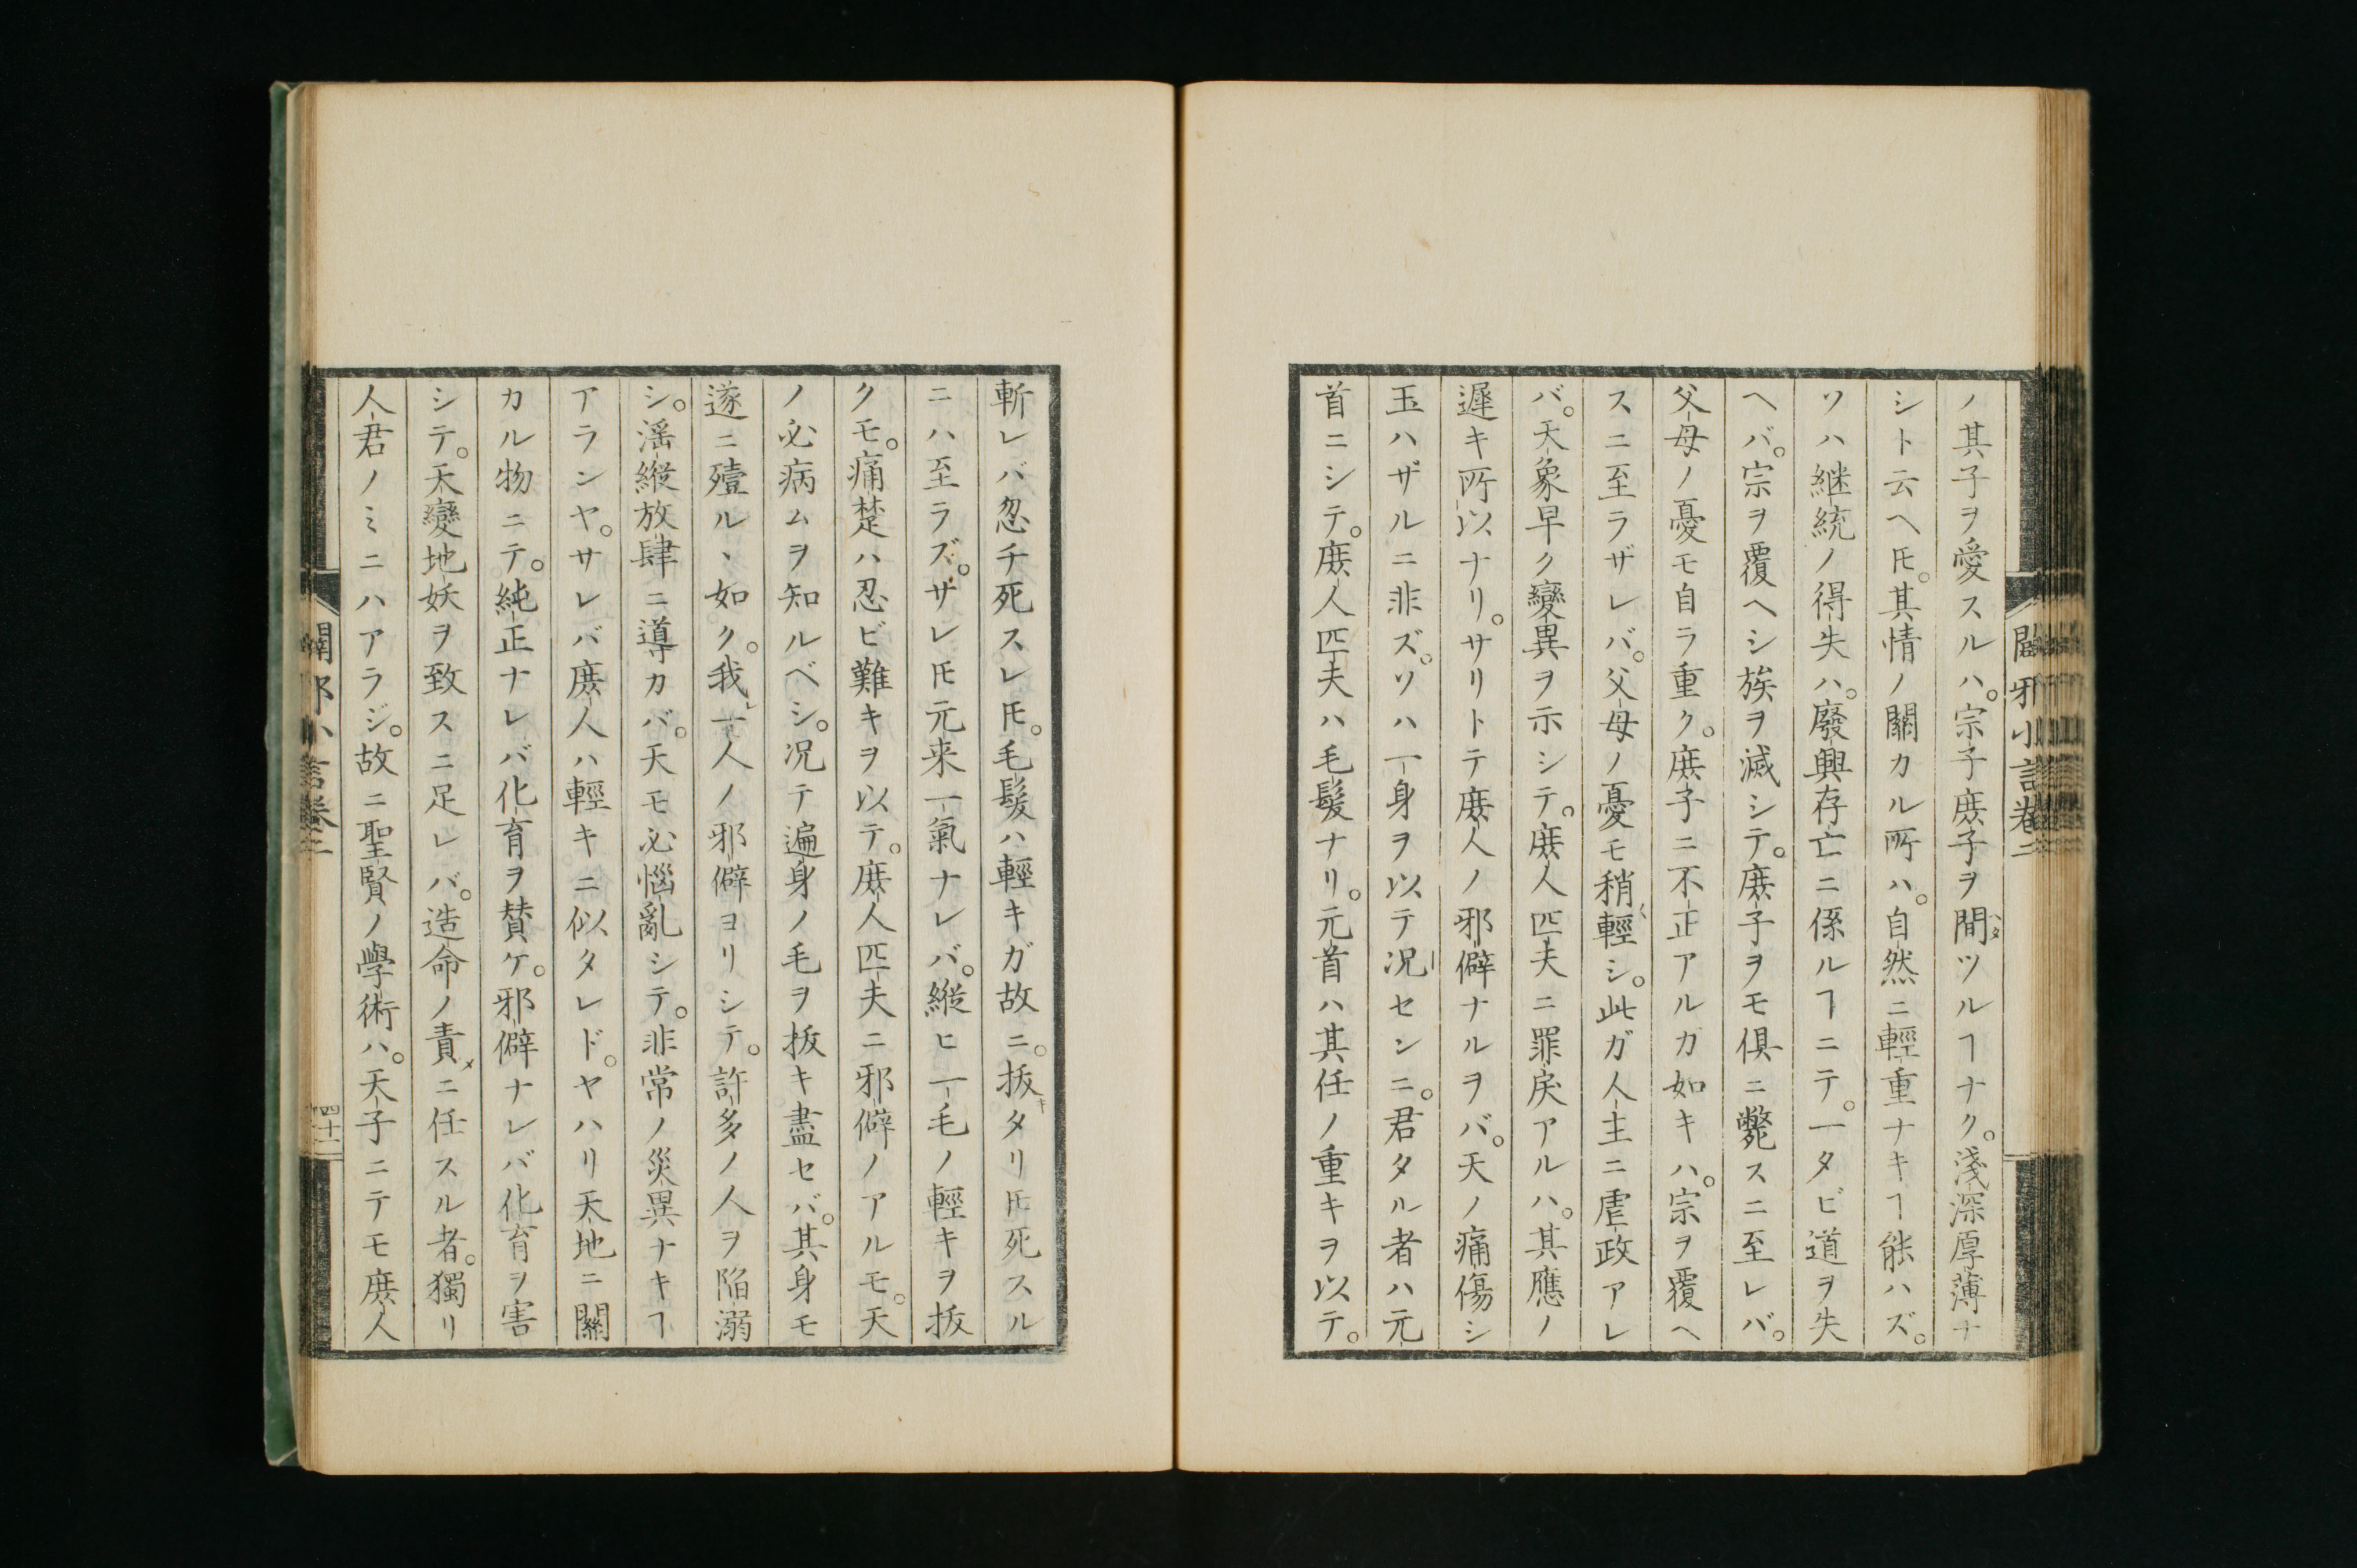 闢邪小言卷二
ノ其子ヲ愛スルハ。宗子庶子ヲ間ツルヿナク。淺深厚薄ナ
シト云ヘ𪜈。其情ノ關カル所ハ。自然ニ輕重ナキヿ能ハズ。
ソハ継統ノ得失ハ。廢興存亡ニ係ルヿニテ。一タビ道ヲ失
ヘバ。宗ヲ覆ヘシ族ヲ滅シテ。庶子ヲモ俱ニ斃スニ至レバ。
父母ノ憂モ自ラ重ク。庶子ニ不正アルカ如キハ。宗ヲ覆ヘ
スニ至ラザレバ。父母ノ憂モ稍輕シ。此ガ人主ニ虐政アレ
バ。天象早ク變異ヲ示シテ。庶人匹夫ニ罪戾アルハ。其應ノ
遲キ所以ナリ。サリトテ庶人ノ邪僻ナルヲバ。天ノ痛傷シ
玉ハザルニ非ズ。ソハ一身ヲ以テ况センニ。君タル者ハ元
首ニシテ。庶人匹夫ハ毛髮ナリ。元首ハ其任ノ重キヲ以テ。
斬レバ忽チ死スレ𪜈。毛髮ハ輕キガ故ニ。拔タリ𪜈死スル
ニハ至ラズ。サレ𪜈元来一氣ナレバ。縱ヒ一毛ノ輕キヲ拔
クモ。痛楚ハ忍ビ難キヲ以テ。庶人匹夫ニ邪僻ノアルモ。天
ノ必病ムヲ知ルベシ。况テ遍身ノ毛ヲ拔キ盡セバ。其身モ
遂ニ殪ルヽ如ク。我一人ノ邪僻ヨリシテ。許多ノ人ヲ陷溺
シ。滛縱放肆ニ導カバ。天モ必惱亂シテ。非常ノ災異ナキヿ
アランヤ。サレバ庶人ハ輕キニ似タレド。ヤハリ天地ニ關
カル物ニテ。純正ナレバ化育ヲ賛ケ。邪僻ナレバ化育ヲ害
シテ。天變地妖ヲ致スニ足レバ。造命ノ責ニ任スル者。獨リ
人君ノミニハアラジ。故ニ聖賢ノ學術ハ。天子ニテモ庶人
闢邪小言卷二
四十二